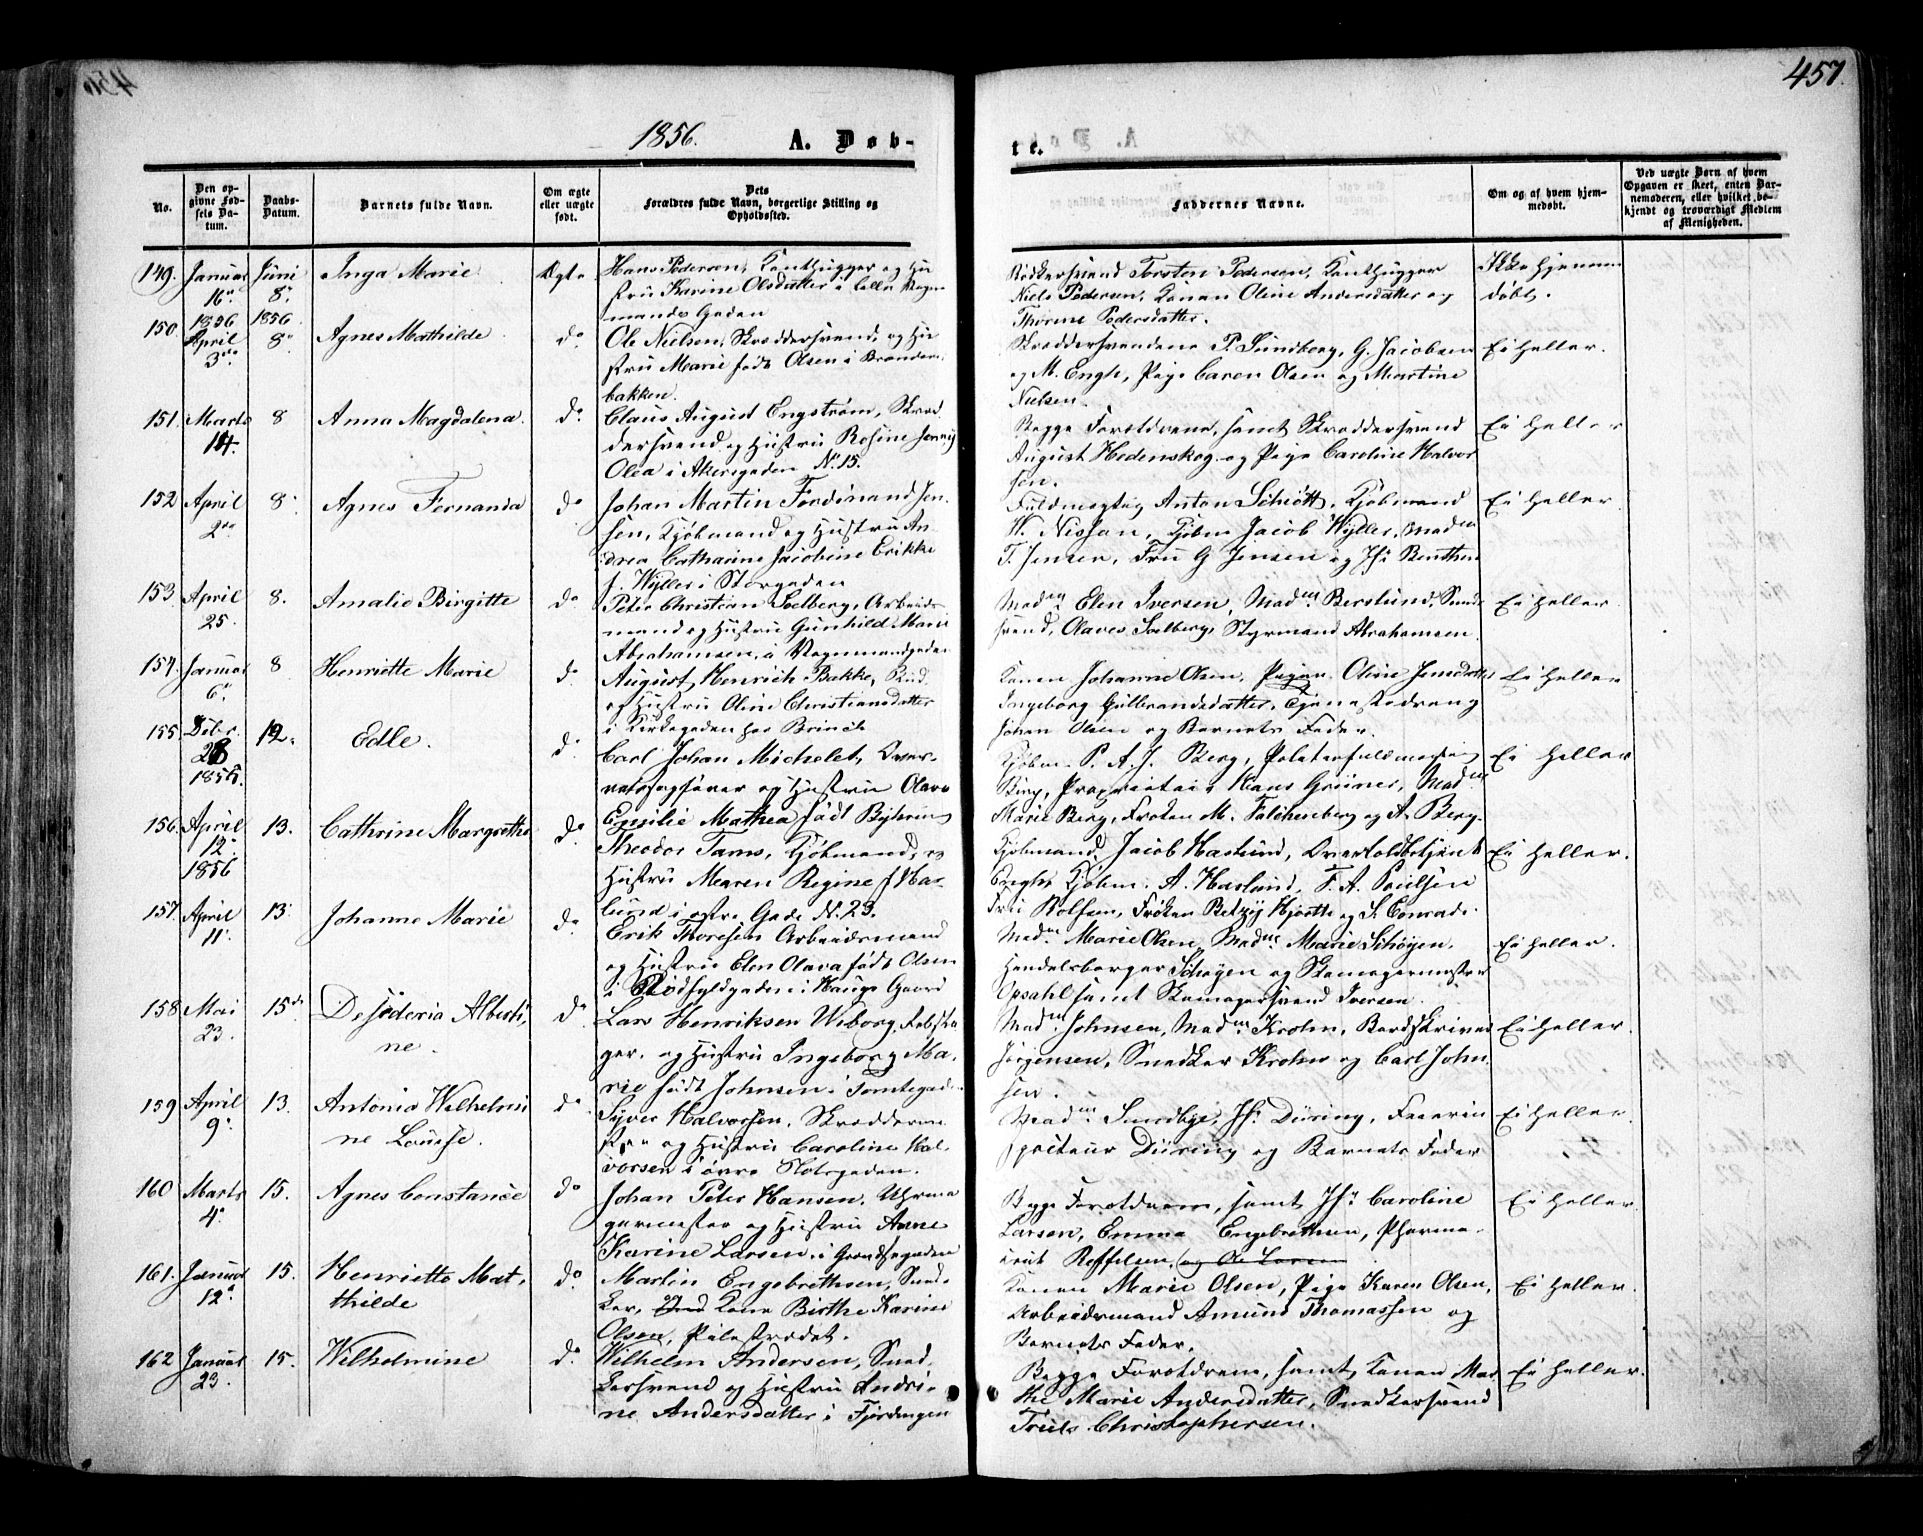 457.
1856. A. Døb-
te.
No.
Den op-
givne Fød-
sels Da-
tum.
Daabs-
Datum.
Barnets fulde Navn.
Om ægte
eller uægte
født.
Dets
Forældres fulde Navn, borgerlige Stilling og
Opholdssted.
Faddernes Navne.
Om og af hvem hjem-
medøbt.
Ved uægte Børn af hvem
Opgaven er skeet, enten Bar-
nemoderen, eller hvilket be-
kjendt og troværdigt Medlem
af Menigheden.
149. Januar 16. 1856 Juni 8. 1856 Inga Marie Ægte
Hans Pedersen, Kanthugger og Hu
stru Karine Olsdatter i lille Vogn
mands Gaden
Torsten Pedersen, Kanthugger
Niels Pedersen, Konen Oline Andersdatter og
Thorine Pedersdatter.
Ikke hjemme
døbt.
150. April 3die 8. Agnes Mathilde do
Ole Nielsen, Skræddersvend, og Hu
stru Marie født Olsen i Brønder
bakken.
Skræddersvendene P. Sundberg, G. Jacobsen
og M. Engh, Pige Caren Olsen og Martine
Nielsen.
Ei heller.
151. Marts 14. 8 Anna Magdalena. do
Claus August Engstrøm, Skræd
dersvend og Hustru Rosine Jenny
Olea i Akersgaden No 15.
Begge Forældrene, samt Skræddersvend
August Hedenskog og Pige Caroline Halvor
sen.
Ei heller
152 April 2den 8. Agnes Fernanda do
Johan Martin Ferdinand Jen-
sen, Kjøbmand og Hustru An
drea Cathrine Jacobine Erikke
f. Wyller i Storgaden
Fuldmægtig Anton Schiøtt, Kjøbmand
W. Nissen, Kjøbm Jacob Wyller, Madm
T. Jensen, Fru G Jensen og Jfr Benthen
Ei heller.
153. April 25. 8. Amalie Birgitte do
Peter Christian Solberg, Arbeids
mand og Hustru Gunhild Marie
Abrahamsen, i Vognmandsgaden
Madm Elen Iversen, Madm Berslund,
svend, Olaves Solberg, Styrmand Abrahamsen.
Ei heller.
154. Januar 6. 8 Henriette Marie do
August Henrich Bakke,
og Hustru Oline Christiansdatter
i Kirkegaden hos Brinch
Konen Johanne Olsen, Pigen Oline Jensdatter
Ingeborg Gulbrandsdatter, Tjenestedreng
Johan Olsen og Barnets Fader.
Ei heller
155. 28 1855. 12. Edle. do
Carl Johan Michelet, Over-
retssagfører og Hustru Olava
Emilie Mathea født Bjhrin
Kjøbm. P. A. J. Berg,
Bing, Proprietair Hans Grüner, Madm
Marie Berg, Frøken M. Falchenberg og A. Berg.
Ei heller
156. April 12. 1856 13. Cathrine Margrethe do
Theodor Tams, Kjøbmand, og
Hustru Maren Regine f. Has-
lund i østre Gade No. 23.
Kjøbmand, Jacob Haslund, Overtoldbetjent
Engh, Kjøbm. A. Haslund, F. A. Poulsen
Fru Rolfsen, Frøken Betzy Hjorth og S. Conradi.
Ei heller.
157. April 11. 13. Johanne Marie do
Erik Thoresen Arbeidsmand
og Hustru Elen Olava født Olsen
i Rødfyldgaden i Hauge Gaard
Madm Marie Olsen, Madm Marie Schøyen,
Handelsborger Schøyen og Skomagermester
Opsahl samt Skomagersvend Iversen.
Ei heller.
158 Mai 23. 15de Desideria Alberti-
ne. do
Lars Henriksen Wiborg,
ger. og Hustru Ingeborg Ma-
rie født Johnsen i Tomtegaden
Madm Johnsen, Madm Krohn, Bordskriver
Jørgensen, Snedker Krohn og Carl John-
sen.
Ei heller.
159 April 9. 13. Antonia Wilhelmi
ne Louise. do
Syver Halvorsen, Skrædderme
ster og Hustru Caroline Hal-
vorsen i øvre Slotsgaden.
Madm Smedbye, Jfr Düring,
Düring og Barnets Fader
Ei heller.
160 Marts 4. 15. Agnes Constance do
Johan Peter Hansen, Uhrma
germester og Hustru Anne
Karine Larsen, i Grændsegaden
Begge Forældrene, samt Jfr Caroline
Larsen, Emma Engebrethsen, Pharma-
ceut Roffelsen, og Ole Larsen
Ei heller.
161. Januar 12. 15. Henriette Mat-
thilde do
Martin Engebrethsen, Sned-
ker, Kone Birthe Karine
Olsen, Pilestrædet.
Konen Marie Olsen, Pige Karen Olsen,
Arbeidsmand Amund Thomassen og
Barnets Fader.
Ei heller.
162 Januar 23. 15. Wilhelmine do
Wilhelm Andersen, Sned-
kersvend og Hustru Andri-
ne Andersdatter i Fjerdingen
Begge Forældrene, samt Konen Mar
the Marie Andersdatter, Snedkersvend
Truls Christophersen.
Ei heller.